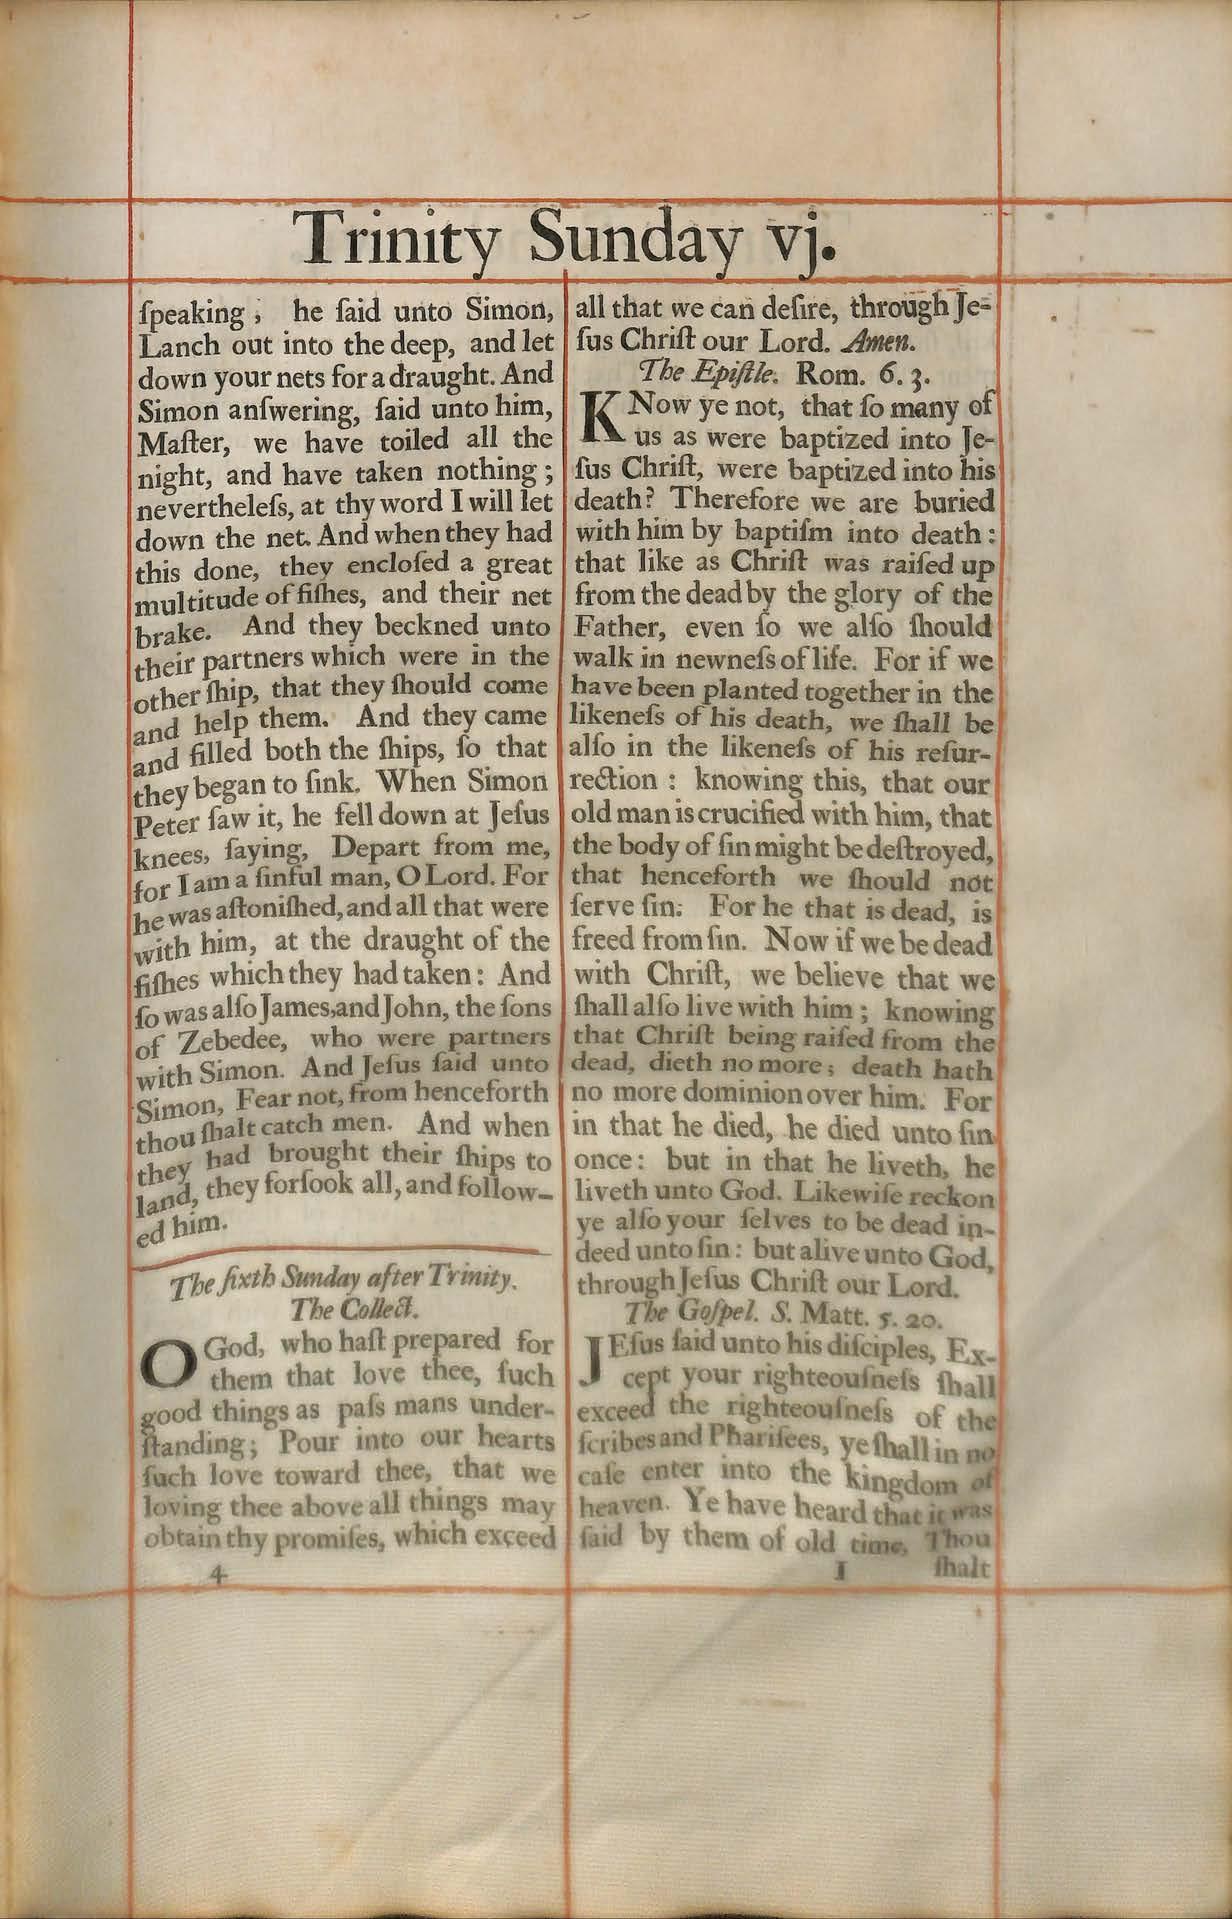 Trinity Sunday vj.
ſpeaking, he ſaid unto Simon,
Lanch out into the deep, and let
down your nets for a draught. And
Simon anſwering, ſaid unto him,
Maſter, we have toiled all the
night, and have taken nothing;
nevertheleſs, at thy word I will let
down the net. And when they had
this done, they encloſed a great
multitude of fiſhes, and their net
brake. And they beckned unto
their partners which were in the
other ſhip, that they ſhould come
and help them. And they came
and filled both the ſhips, ſo that
they began to ſink. When Simon
Peter ſaw it, he fell down at Jeſus
knees, ſaying, Depart from me,
for I am a ſinful man, O Lord. For
he was aſtoniſhed, and all that were
with him, at the draught of the
fiſhes which they had taken: And
ſo was alſo James, and John, the ſons
of Zebedee, who were partners
with Simon. And Jeſus ſaid unto
Simon, Fear not, from henceforth
thou ſhalt catch men. And when
they had brought their ſhips to
land, they forſook all, and follow-
ed him.
The ſixth Sunday after Trinity.
The Collect.
O God, who haſt prepared for
them that love thee, ſuch
good things as paſs mans under-
ſtanding; Pour into our hearts
ſuch love toward thee, that we
loving thee above all things may
obtain thy promiſes, which exceed
4
all that we can deſire, through Je-
ſus Chriſt our Lord. Amen.
The Epiſtle. Rom. 6. 3.
KNow ye not, that ſo many of
us as were baptized into Je-
ſus Chriſt, were baptized into his
death? Therefore we are buried
with him by baptiſm into death:
that like as Chriſt was raiſed up
from the dead by the glory of the
Father, even ſo we alſo ſhould
walk in newneſs of life. For if we
have been planted together in the
likeneſs of his death, we ſhall be
alſo in the likeneſs of his reſur-
rection: knowing this, that our
old man is crucified with him, that
the body of ſin might be deſtroyed,
that henceforth we ſhould not
ſerve ſin. For he that is dead, is
freed from ſin. Now if we be dead
with Chriſt, we believe that we
ſhall alſo live with him; knowing
that Chriſt being raiſed from the
dead, dieth no more; death hath
no more dominion over him. For
in that he died, he died unto ſin
once: but in that he liveth, he
liveth unto God. Likewiſe reckon
ye alſo your ſelves to be dead in-
deed unto ſin: but alive unto God,
through Jeſus Chriſt our Lord.
The Goſpel. S. Matt. 5. 20.
JEſus ſaid unto his diſciples, Ex-
cept your righteouſneſs ſhall
exceed the righteouſneſs of the
ſcribes and Phariſees, ye ſhall in no
caſe enter into the kingdom of
heaven. Ye have heard that it was
ſaid by them of old time, Thou
I ſhalt